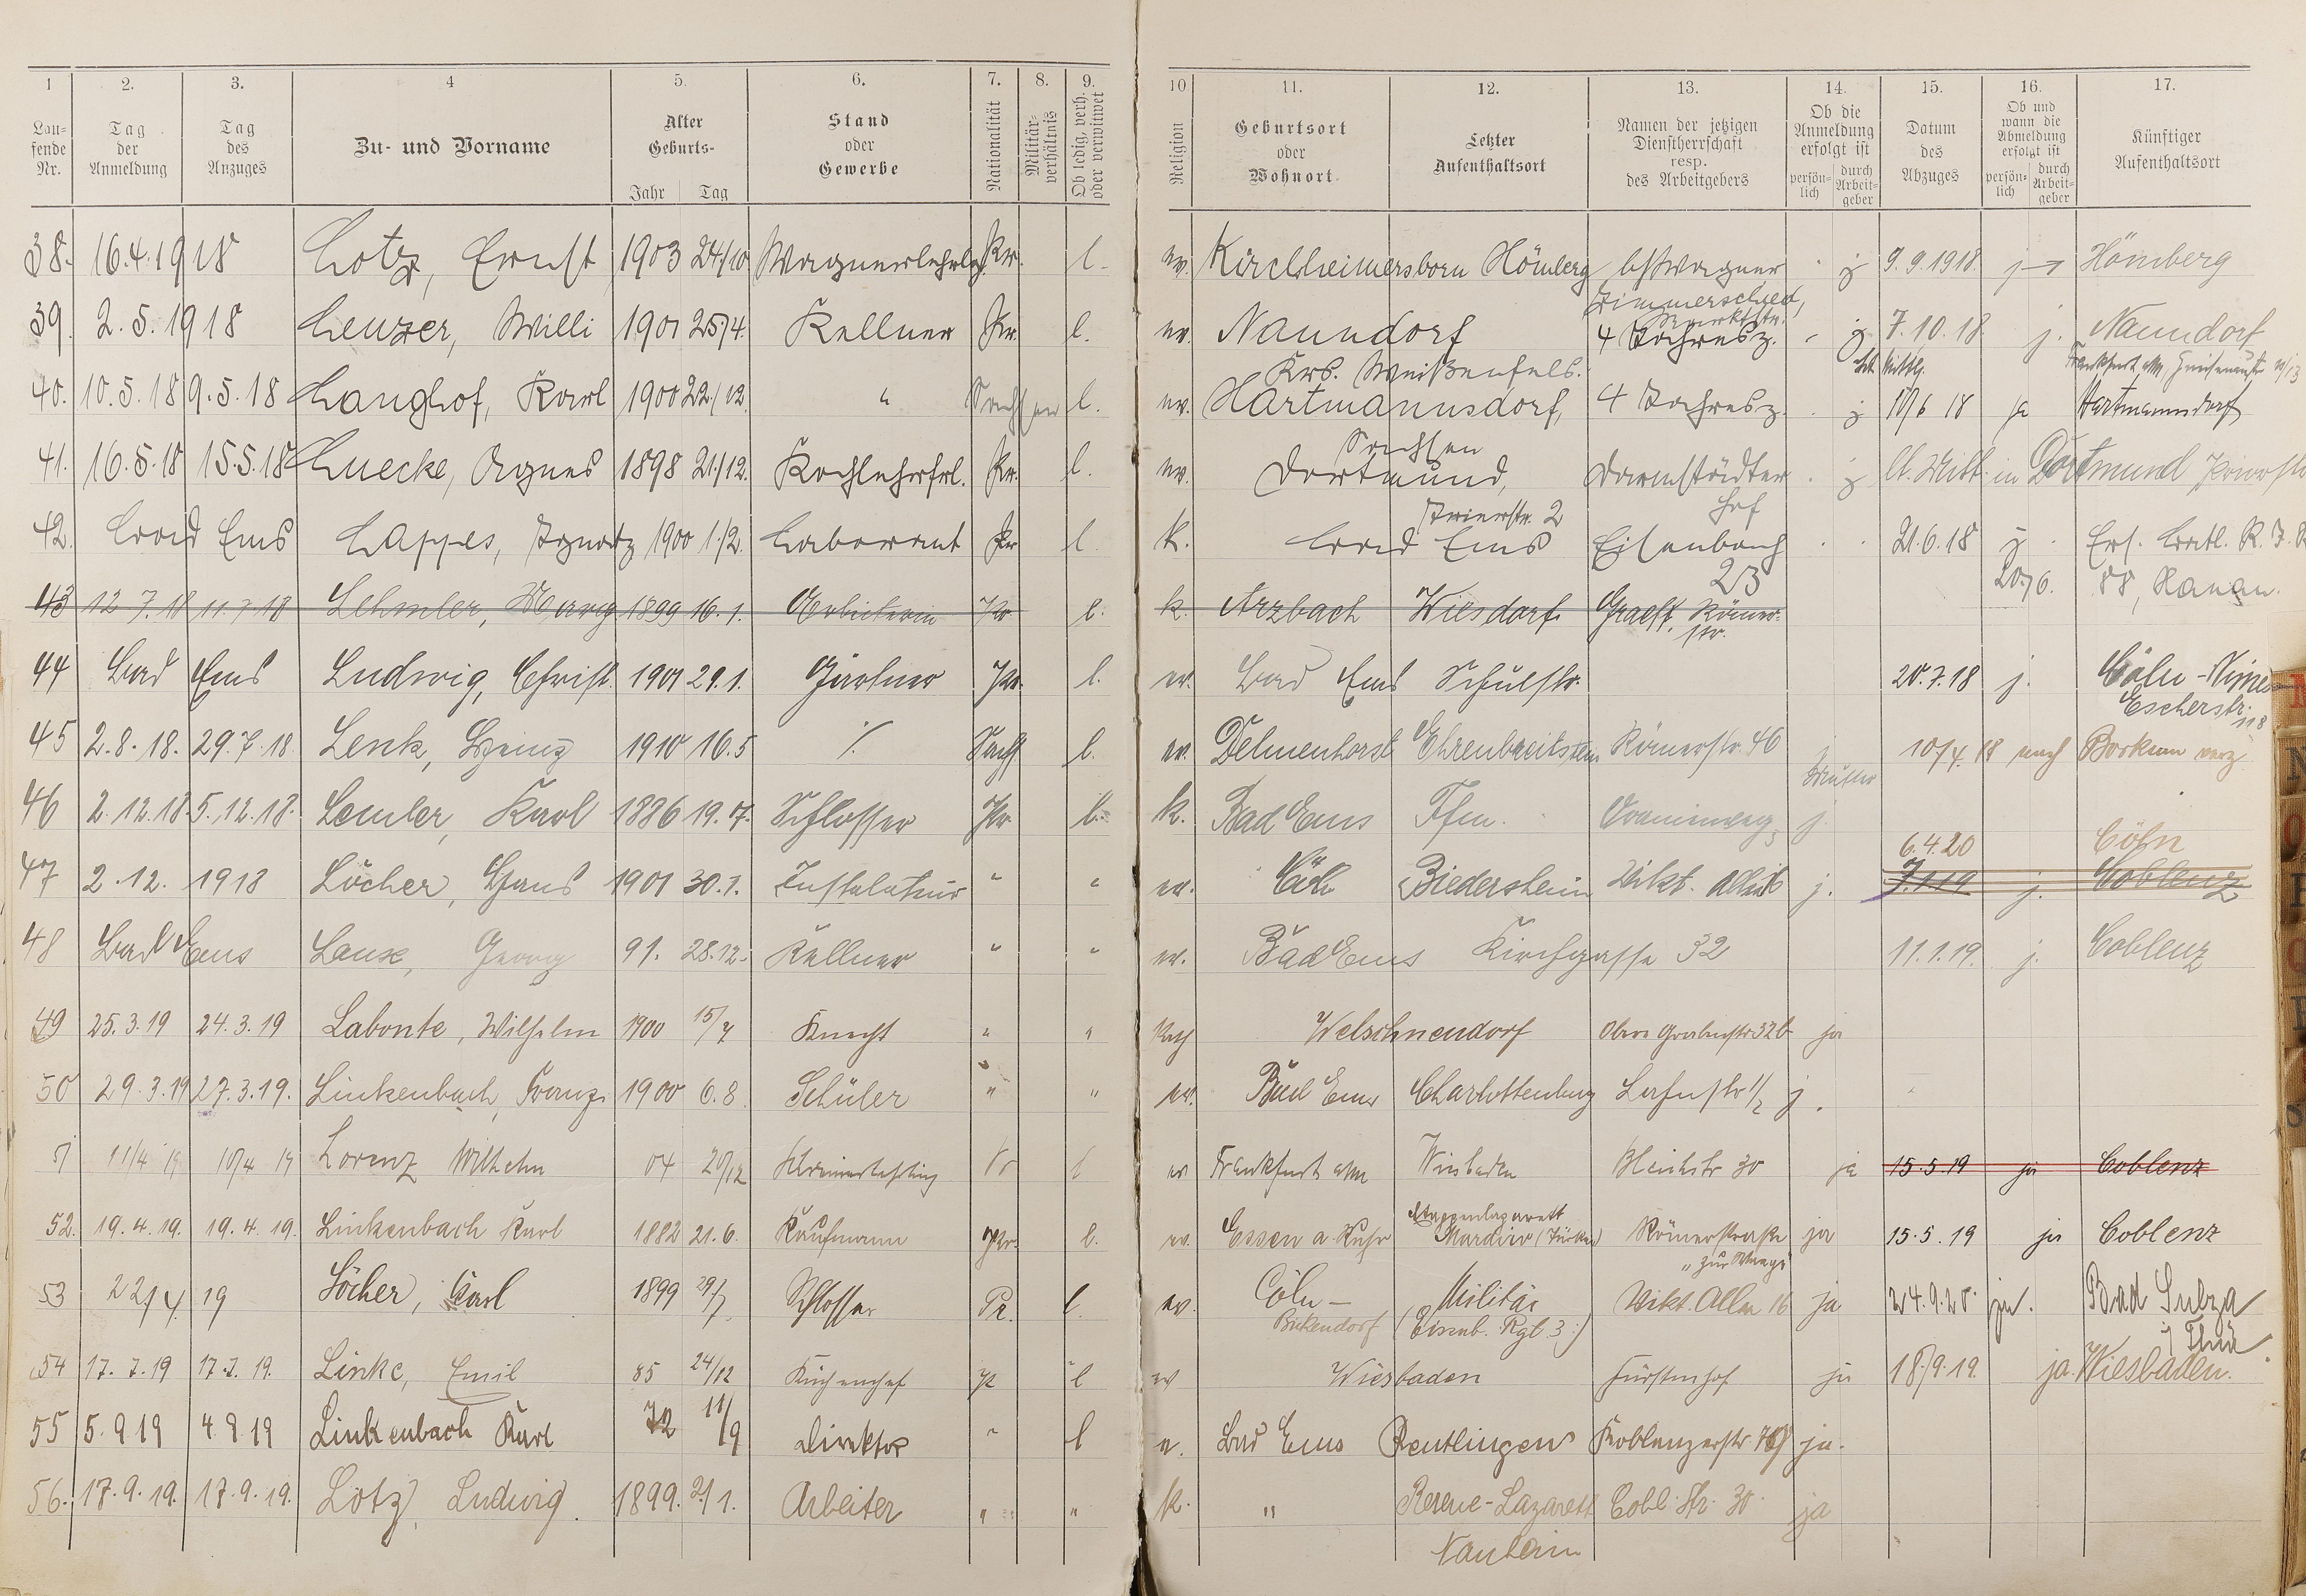 1 2. 3. 4 5. 6. 7. 8. 9. 10 11. 12. 13. 14. 15. 16. 17.
Lau-
fende
Nr.
Tag
der
Anmeldung
Tag
des
Anzuges
Zu- und Vorname
Alter
Geburts-
Jahr Tag
Stand
oder
Gewerbe
Nationalität
Militär-
verhältnis
Ob ledig, verh.
oder verwitwet
Religion
Geburtsort
oder
Wohnort
Letzter
Aufenthaltsort
Namen der jetzigen
Dienstherrschaft
resp.
des Arbeitgebers
Ob die
Anmeldung
erfolgt ist
persön-
lich
durch
Arbeit-
geber
Datum
des
Abzuges
Ob und
wann die
Abmeldung
erfolgt ist
persön-
lich
durch
Arbeit-
geber
Künftiger
Aufenthaltsort
38. 16.4.1918 Lotz, Ernst 1903 24/10 Wagnerlehrlg. Pr. l. ev. Kirchheimersborn Hömberg Wagner j 9.9.1918. j Hömberg
Zimmerschied,
Marktstr.
39. 2.5.1918 Leuzer, Willi 1901 25/4. Kellner Pr. l. ev. Naundorf 4 Jahresz. j 7.10.18. j. Naundorf
Krs. Weißenfels.
Frankfurt a/M, Gneisenaustr.
40. 10.5.18 9.5.18 Langhof, Karl 1900 22./12. " Sachsen l. ev. Hartmannsdorf, 4 Jahresz. j 10/6 18 ja Hartmannsdorf
Sachsen
41. 16.5.18 15.5.18 Luecke, Agnes 1898 21./12. Kochlehrfrl. Pr. l. ev. Dortmund, Darmstädter j lt. Mitt. in Dortmund
Hof
42. Bad Ems Lappes, Ignatz 1900 1./2. Laborant Pr. l. k. Bad Ems Eisenbach 21.6.18 j Ers. Batl. R. J. R.
23 20./6. 88, Hanau.
43 12.7.18 11.7.18 Lehmler, Marg. 1899 16.1. Arbeiterin Pr. l. k. Arzbach Wiesdorf Graeff, Römer-
str.
44 Bad Ems Ludwig, Christ. 1901 29.1. Gärtner Pr. l. ev. Bad Ems Schulstr. 20.7.18 j. Cöln-Nippes
Escherstr.
118
45 2.8.18. 29.7.18 Lenk, Heinz 1910 16.5 ./. Sachs. l. ev. Delmenhorst Ehrenbreitstein Römerstr. 46 10/4. 18 nach Borkum verz.
Mutter
46 2.12.18. 5.12.18. Lemler, Karl 1886 19.7. Schlosser Pr. l. k. Bad Ems Ffm. Oranienweg, j.
6.4.20 Cöln
47 2.12. 1918 Löcher, Hans 1901 30.1. Installateur " " ev. Cöln Biederstein Vikt. Allee j. 7.1.19 j. Coblenz
48 Bad Ems Laux, Georg 91. 28.12. Kellner " " ev. Bad Ems Kirchgasse 32 11.1.19. j. Coblenz
49 25.3.19 24.3.19 Labonte, Wilhelm 1900 15/7 Knecht " " Kath Welschneudorf Obere Grabenstr. 32b ja
50 29.3.19 27.3.19. Linkenbach, Franz 1900 6.8 Schüler " " ev. Bad Ems Charlottenburg Lahnstr. 1/2 j.
51 11/4 19 10/4 19 Lorenz Wilhelm 04 20/12 Schreinerlehrling Pr l ev Frankfurt a/M Wiesbaden Bleichstr 30 ja 15.5.19 ja Coblenz
52. 19.4.19. 19.4.19. Linkenbach Karl 1882 21.6. Kaufmann Pr. l. ev. Essen a. Ruhr Etappenlazarett
Mardin (Türkei) Römerstraße ja 15.5.19 ja Coblenz
"zur Waage"
53 22/4 19 Löcher, Karl 1899 29/7. Schlosser Pr. l. ev. Cöln- Militär Vikt. Allee 16 ja 24.9.20. ja. Bad Sulza
Bickendorf (Eisenb. Rgt 3.) i/Thür.
54 17.7.19 17.7.19. Linke, Emil 85 24/12 Küchenchef Pr l ev Wiesbaden Fürstenhof ja 18./9.19. ja. Wiesbaden.
55 5.9.19 4.9.19 Linkenbach Karl 72 11/9 Direktor " l e. Bad Ems Reutlingen Koblenzerstr. ja.
56. 17.9.19. 17.9.19. Lotz, Ludwig. 1899. 21/1. Arbeiter " " k. " Reserve-Lazarett Cobl. Str. 30 ja
Nauheim